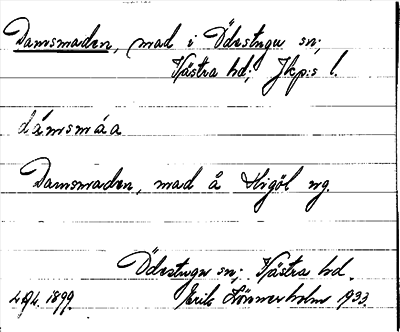 Damsmaden, mad i Ödestugu sn;
Västra hd; Jkp:s l.
dámsmáa
Damsmaden, mad å Stigöl mg.
Ödestugu sn; Västra hd.
1899. Erik Lönnerholm 1933.